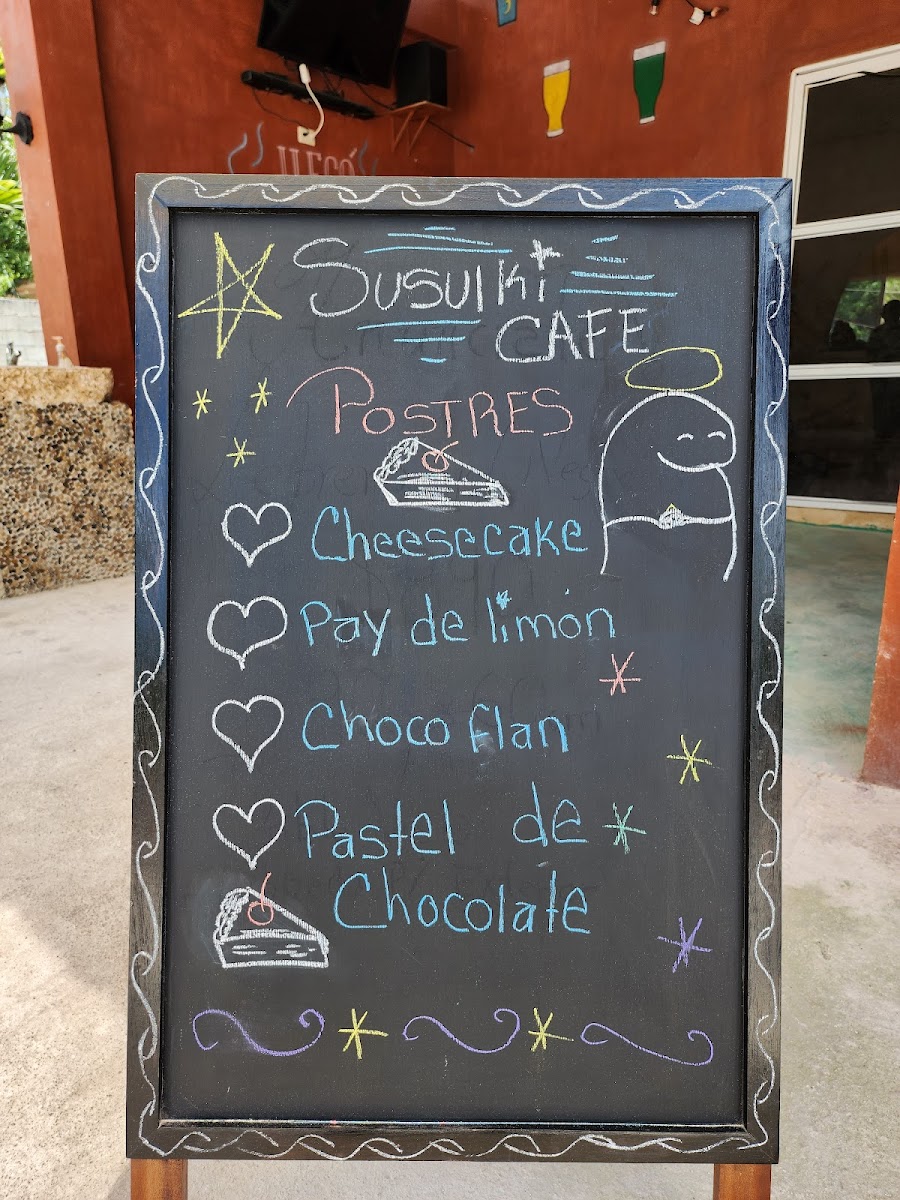 LLEGÓ
Susulki
CAFE
POSTRES
Cheesecake
Pay de limón
Choco flan
Pastel de
Chocolate